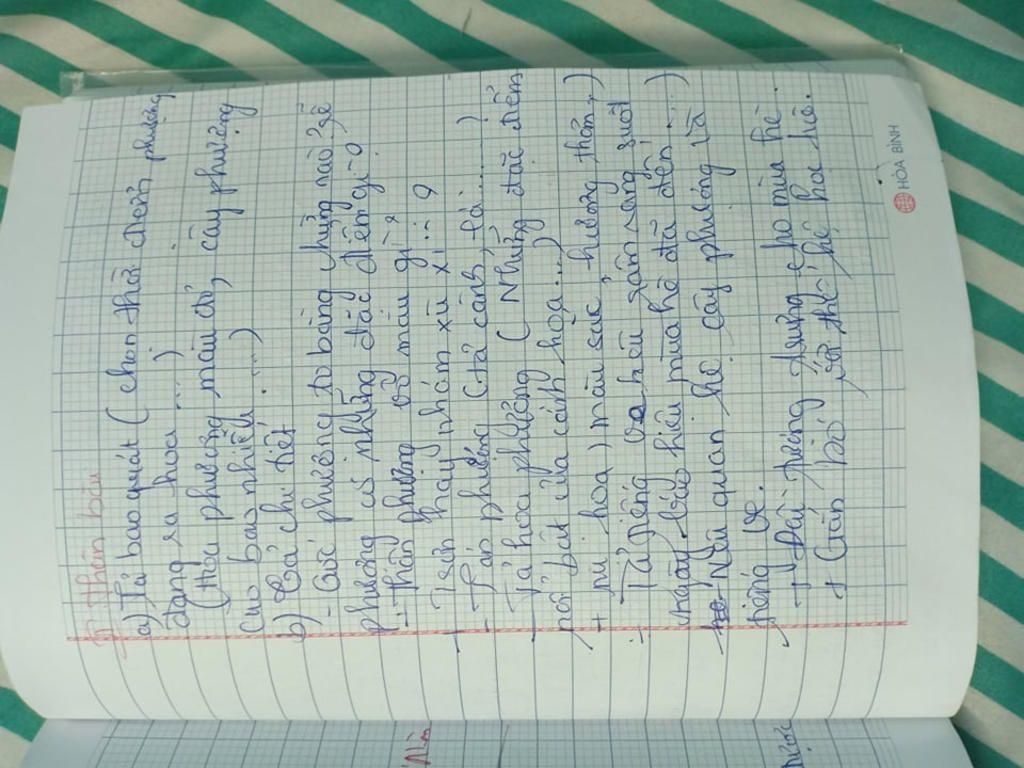 2) Thân bài
a) Tả bao quát (chọn thời điểm phượng
đang ra hoa ...)
(Hoa phượng màu đỏ, cây phượng
cao bao nhiêu ....)
b) Tả chi tiết
- Gốc phượng to bằng chừng nào, rễ
phượng có những đặc điểm gì?
- Thân phượng vỏ màu gì?
Trơn hay nhám xù xì ...?
- Tán phượng (tả cành, lá .....)
- Tả hoa phượng (Những đặc điểm
nổi bật của cánh hoa...)
+ nụ hoa, màu sắc, hương thơm,)
+ Tả tiếng ve kêu râm rang suốt
ngày báo hiệu mùa hè đã đến ...)
Nêu quan hệ cây phượng và
tiếng ve.
+ Đặc trưng cho mùa hè.
+ Gắn bó với thế hệ học trò.
HÒA BÌNH